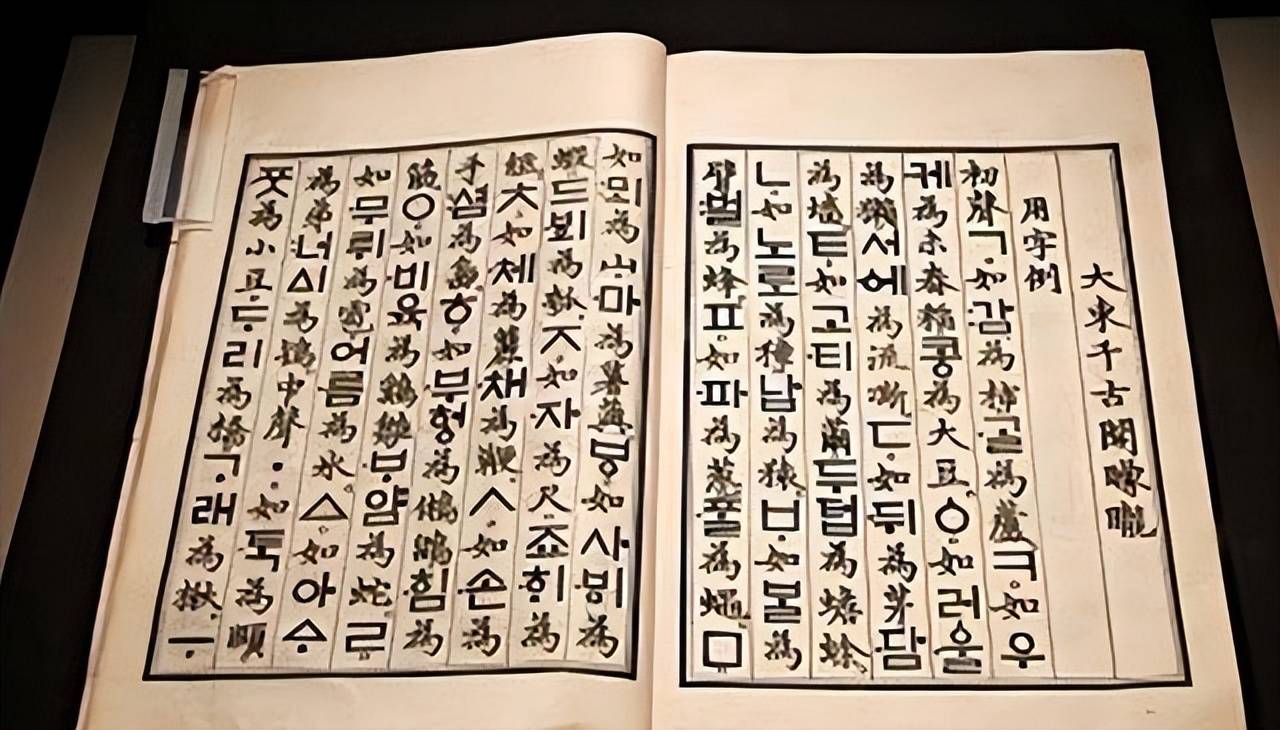 大東千古開矇矓
用字例
初聲ㄱ如감爲柿ᄀᆞᆯ爲蘆ㅋ如우
케爲未舂稻콩爲大豆ㆁ如러울
爲獺서에爲流凘ㄷ如뒤爲茅담
爲墻ㅌ如고티爲繭두텁爲蟾蜍
ㄴ如노로爲獐남爲猿ㅂ如ᄇᆞᆯ爲
臂벌爲蜂ㅍ如파爲葱ᄑᆞᆯ爲蠅ㅁ
如뫼爲山마爲薯藇ㅸ如사ᄫᅵ爲
蝦드ᄫᅴ爲瓠ㅈ如자爲尺죠ᄒᆡ爲
紙ㅊ如체爲籭채爲鞭ㅅ如손爲
手셤爲島ㅎ如부헝爲鵂鶹힘爲
筋ㅇ如비육爲鷄雛ᄇᆞ얌爲蛇ㄹ
如무뤼爲雹어름爲氷ㅿ如아ᅀᆞ
爲弟너ᅀᅵ爲鴇中聲ㆍ如ᄐᆞᆨ爲頤
ᄑᆞᆺ爲小豆ᄃᆞ리爲橋ᄀᆞ래爲楸ㅡ